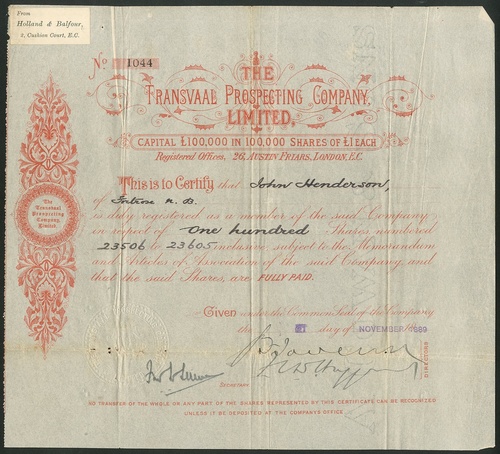 From
Holland & Balfour,
2, Cushion Court, E.C.
No 1044
THE
TRANSVAAL PROSPECTING COMPANY,
LIMITED.
CAPITAL £100,000 IN 100,000 SHARES OF £1 EACH
Registered Offices, 26, AUSTIN FRIARS, LONDON, E.C.
This is to Certify that John Henderson,
of N. B.
is duly registered as a member of the said Company
in respect of One hundred Shares numbered
23506 to 23605 inclusive, subject to the Memorandum
and Articles of Association of the said Company and
that the said Shares, are FULLY PAID.
The
Transvaal
Prospecting
Company,
Limited.
Given under the Common Seal of the Company
the day of NOVEMBER 1889
DIRECTORS
SECRETARY
NO TRANSFER OF THE WHOLE OR ANY PART OF THE SHARES REPRESENTED BY THIS CERTIFICATE CAN BE RECOGNIZED
UNLESS IT BE DEPOSITED AT THE COMPANY'S OFFICE